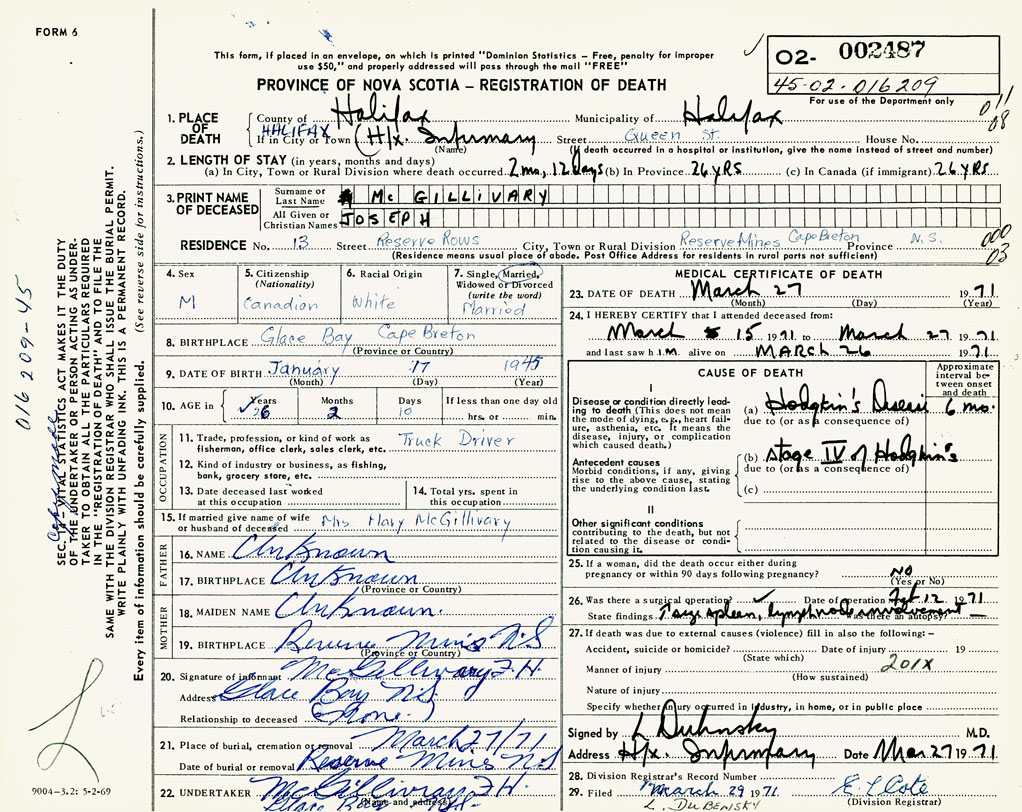 FORM 6
This form, if placed in an envelope, on which is printed "Dominion Statistics – Free, penalty for improper
use $50," and properly addressed will pass through the mail "FREE"
PROVINCE OF NOVA SCOTIA – REGISTRATION OF DEATH
02- 002487
45-02-016209
For use of the Department only
011
08
1. PLACE OF DEATH
County of Halifax Municipality of Halifax
If in City or Town HALIFAX (Hfx. Infirmary Street Queen St. House No.
(Name) (If death occurred in a hospital or institution, give the name instead of street and number)
2. LENGTH OF STAY (in years, months and days)
(a) In City, Town or Rural Division where death occurred 2 mo, 12 days (b) In Province 26 YRS (c) In Canada (if immigrant) 26 YRS
3. PRINT NAME OF DECEASED
Surname or Last Name Mc GILLIVARY
All Given or Christian Names JOSEPH
RESIDENCE No. 13 Street Reserve Rows City, Town or Rural Division Reserve Mines Cape Breton Province N.S.
(Residence means usual place of abode. Post Office Address for residents in rural parts not sufficient)
000
03
4. Sex
M
5. Citizenship
(Nationality)
Canadian
6. Racial Origin
White
7. Single, Married,
Widowed or Divorced
(write the word)
Married
8. BIRTHPLACE Glace Bay Cape Breton
(Province or Country)
9. DATE OF BIRTH January 17 1945
(Month) (Day) (Year)
10. AGE in
Years 26
Months 2
Days 10
If less than one day old
hrs. or min.
OCCUPATION
11. Trade, profession, or kind of work as
fisherman, office clerk, sales clerk, etc. Truck Driver
12. Kind of industry or business, as fishing,
bank, grocery store, etc.
13. Date deceased last worked
at this occupation
14. Total yrs. spent in
this occupation
15. If married give name of wife
or husband of deceased Mrs. Mary McGillivary
FATHER
16. NAME Unknown
17. BIRTHPLACE Unknown
(Province or Country)
MOTHER
18. MAIDEN NAME Unknown.
19. BIRTHPLACE Reserve Mines N.S
(Province or Country)
20. Signature of informant McGillivary F.H.
Address Glace Bay N.S.
Relationship to deceased (None.)
21. Place of burial, cremation or removal March 27/71
Date of burial or removal Reserve Mines NS
22. UNDERTAKER McGillivary F.H.
(Name and address) Glace Bay
MEDICAL CERTIFICATE OF DEATH
23. DATE OF DEATH March 27 1971
(Month) (Day) (Year)
24. I HEREBY CERTIFY that I attended deceased from:
March 15 1971 to March 27 1971
and last saw h IM. alive on MARCH 26 1971
CAUSE OF DEATH
Approximate
interval be-
tween onset
and death
I
Disease or condition directly lead-
ing to death (This does not mean
the mode of dying, e.g., heart fail-
ure, asthenia, etc. It means the
disease, injury, or complication
which caused death.)
(a) Hodgkin's 6 mo.
due to (or as a consequence of)
Antecedent causes
Morbid conditions, if any, giving
rise to the above cause, stating
the underlying condition last.
(b) Stage IV of Hodgkin's
due to (or as a consequence of)
(c)
II
Other significant conditions
contributing to the death, but not
related to the disease or condi-
tion causing it.
25. If a woman, did the death occur either during
pregnancy or within 90 days following pregnancy? NO
(Yes or No)
26. Was there a surgical operation? ✓ Date of operation 12 1971
State findings spleen, lymph node involvement Was there an autopsy? —
27. If death was due to external causes (violence) fill in also the following:–
Accident, suicide or homicide? Date of injury 19
(State which)
Manner of injury 201X
(How sustained)
Nature of injury
Specify whether injury occurred in industry, in home, or in public place
Signed by L Dubinsky M.D.
Address Hfx. Infirmary Date Mar 27 1971
28. Division Registrar's Record Number
29. Filed March 29 1971
L. DUBENSKY
(Division Registrar)
016 209-45
SEC. 14 – VITAL STATISTICS ACT MAKES IT THE DUTY
OF THE UNDERTAKER OR PERSON ACTING AS UNDER-
TAKER TO OBTAIN THE PARTICULARS REQUIRED
IN THE "REGISTRATION OF DEATH" AND TO FILE THE
SAME WITH THE DIVISION REGISTRAR WHO SHALL ISSUE THE BURIAL PERMIT.
WRITE PLAINLY WITH UNFADING INK. THIS IS A PERMANENT RECORD.
Every item of information should be carefully supplied. (See reverse side for instructions.)
9004–3.2: 5-2-69